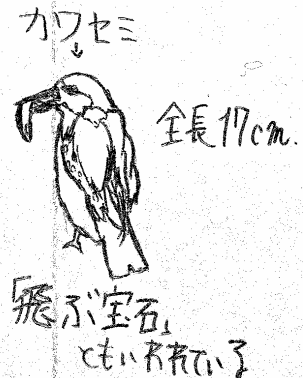 カワセミ
全長17cm.
「飛ぶ宝石」
ともいわれている